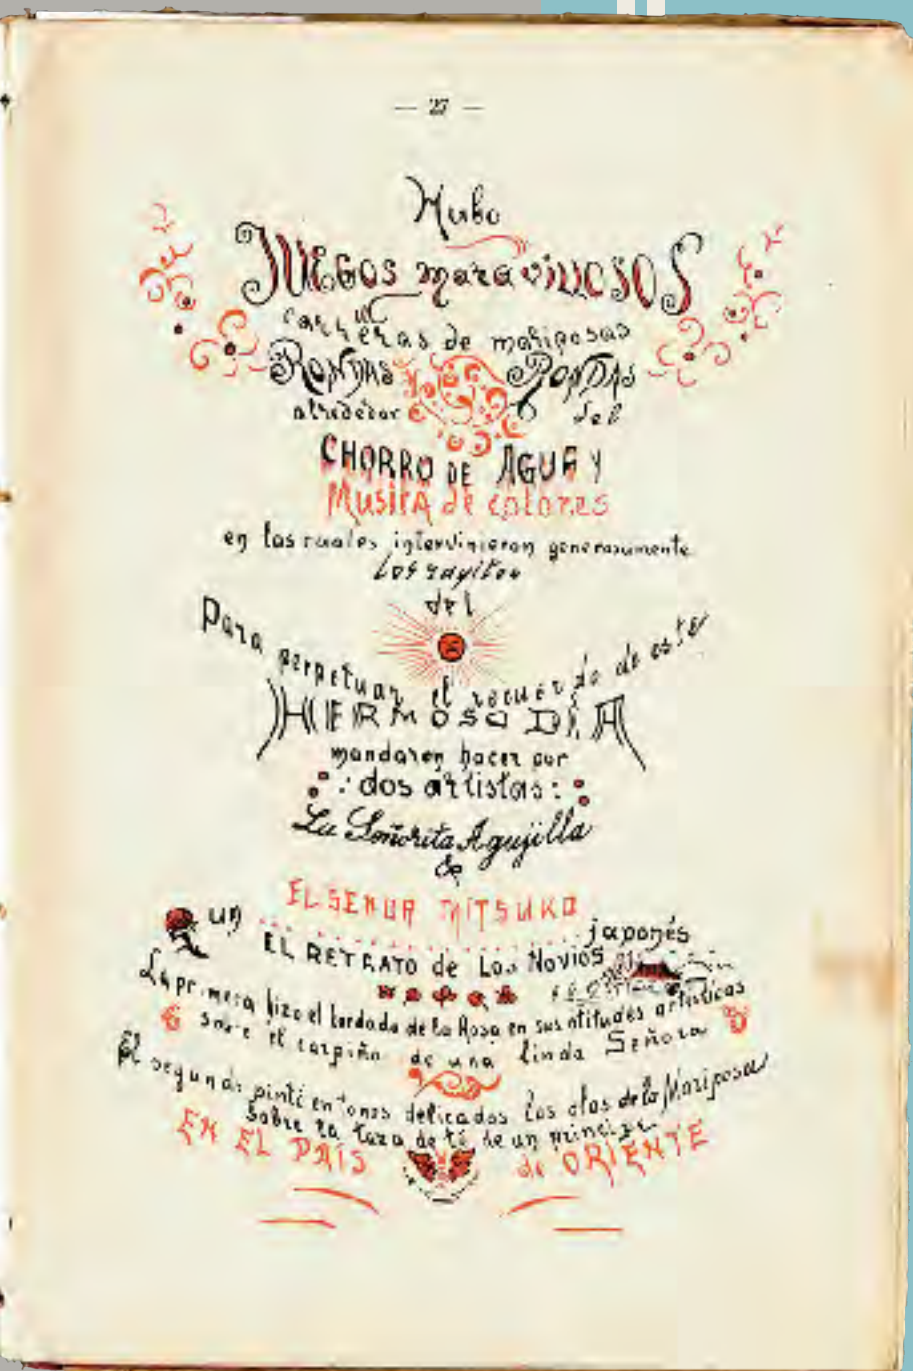 — 27 —
Hubo
JUEGOS maravillosos
carreras de mariposas
RONDAS RONDAS
alrededor del
CHORRO DE AGUA Y
Musica de colores
en las cuales intervinieron generosamente
Los rayitos
del
Para perpetuar el recuerdo de este
HERMOSO DÍA
mandaron hacer por
dos artistas:
La Señorita Agujilla
&
EL SEÑOR MITSUKO
un japonés
EL RETRATO de Los Novios
La primera hizo el bordado de la Rosa en sus atitudes artísticas
sobre el corpiño de una linda Señora
El segundo pintó en tonos delicados las alas de la Mariposa
sobre la taza de té de un príncipe
EN EL PAÍS de ORIENTE